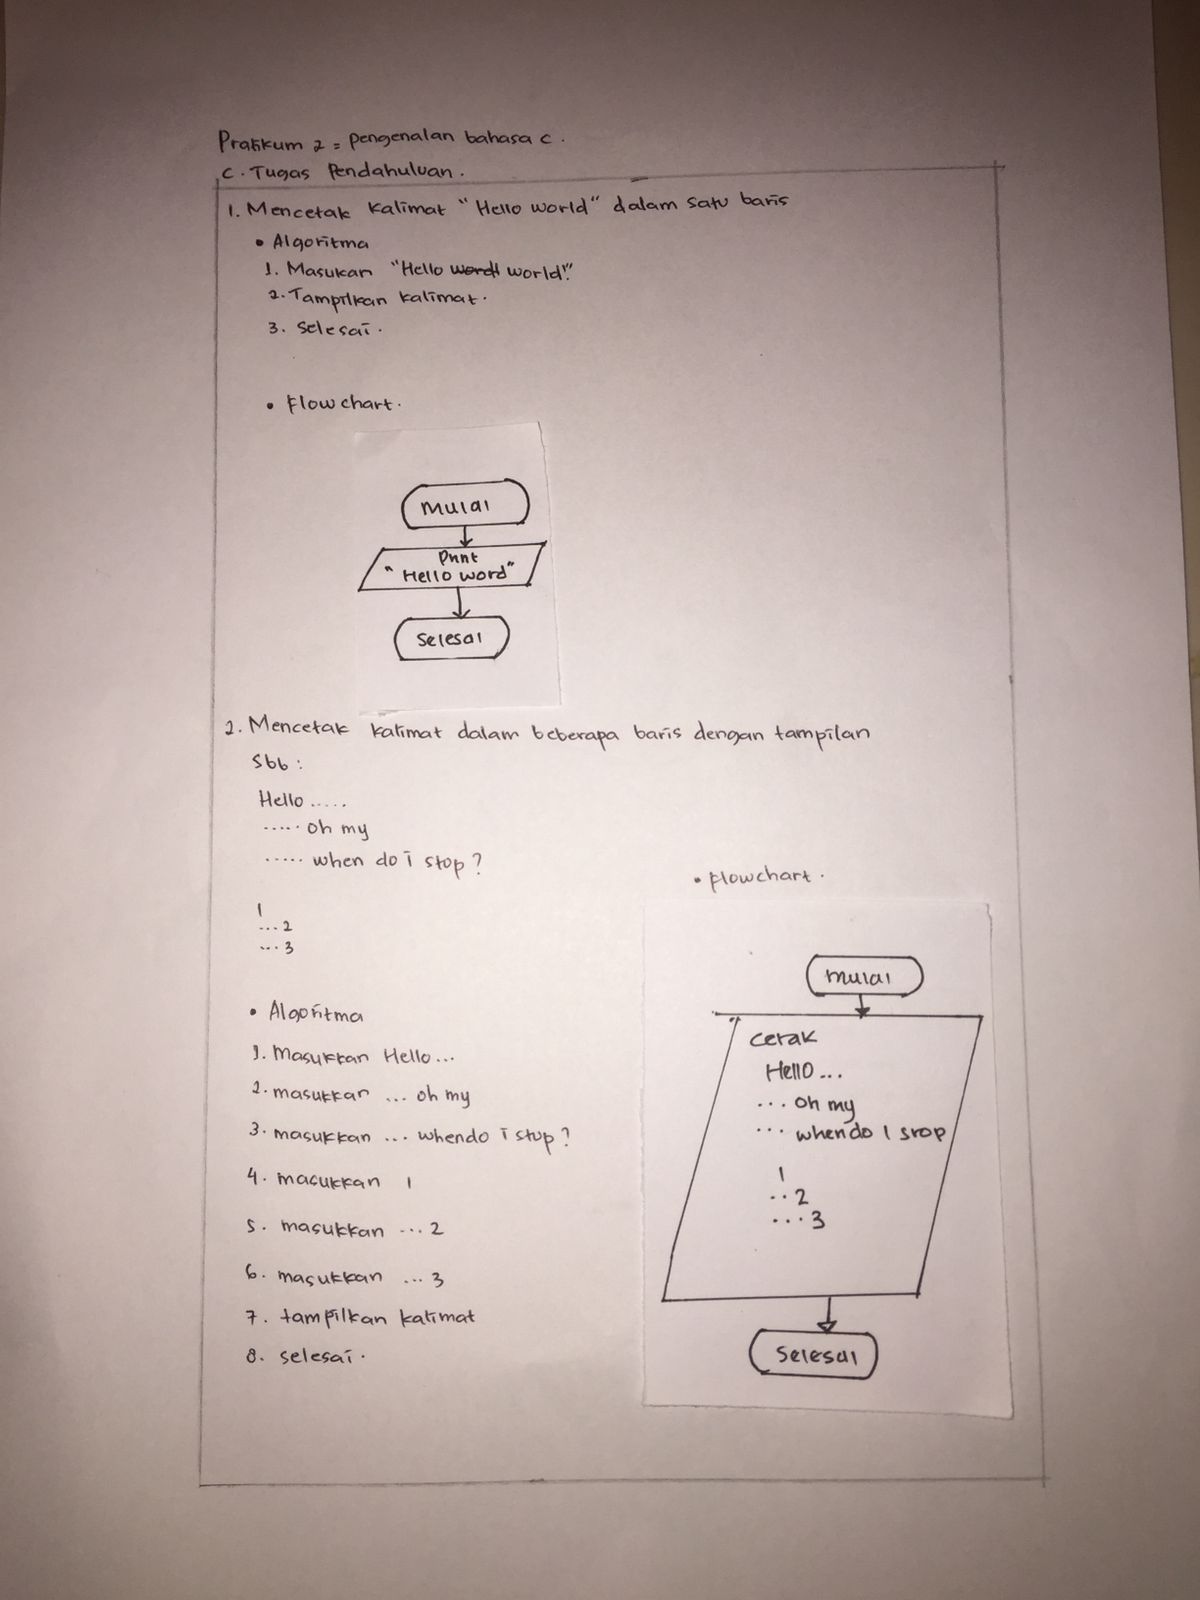 Pratikum 2 = pengenalan bahasa c.
C. Tugas Pendahuluan.
1. Mencetak kalimat "Hello world" dalam satu baris
• Algoritma
1. Masukan "Hello wordl world!"
2. Tampilkan kalimat.
3. selesai.
• Flowchart.
Mulai
Print
"Hello word"
Selesai
2. Mencetak kalimat dalam beberapa baris dengan tampilan
sbb :
Hello .....
..... oh my
..... when do i stop ?
1
... 2
... 3
• Algoritma
1. Masukkan Hello ...
2. masukkan ... oh my
3. masukkan ... whendo i stop ?
4. masukkan 1
5. masukkan ... 2
6. masukkan ... 3
7. tampilkan kalimat
8. selesai.
• Flowchart.
Mulai
cetak
Hello ...
... oh my
... whendo I stop
1
.. 2
... 3
Selesai